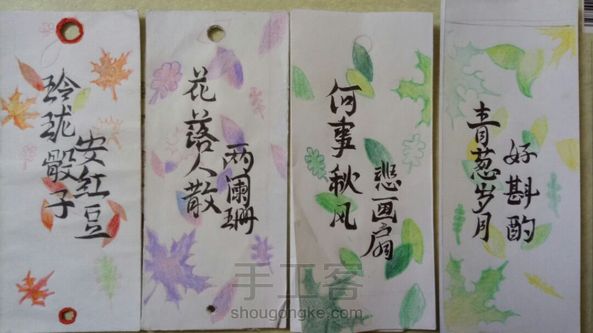 玲珑骰子
安红豆
花落人散
两阑珊
何事秋风
悲画扇
青葱岁月
好斟酌
手工客
shougongke.com